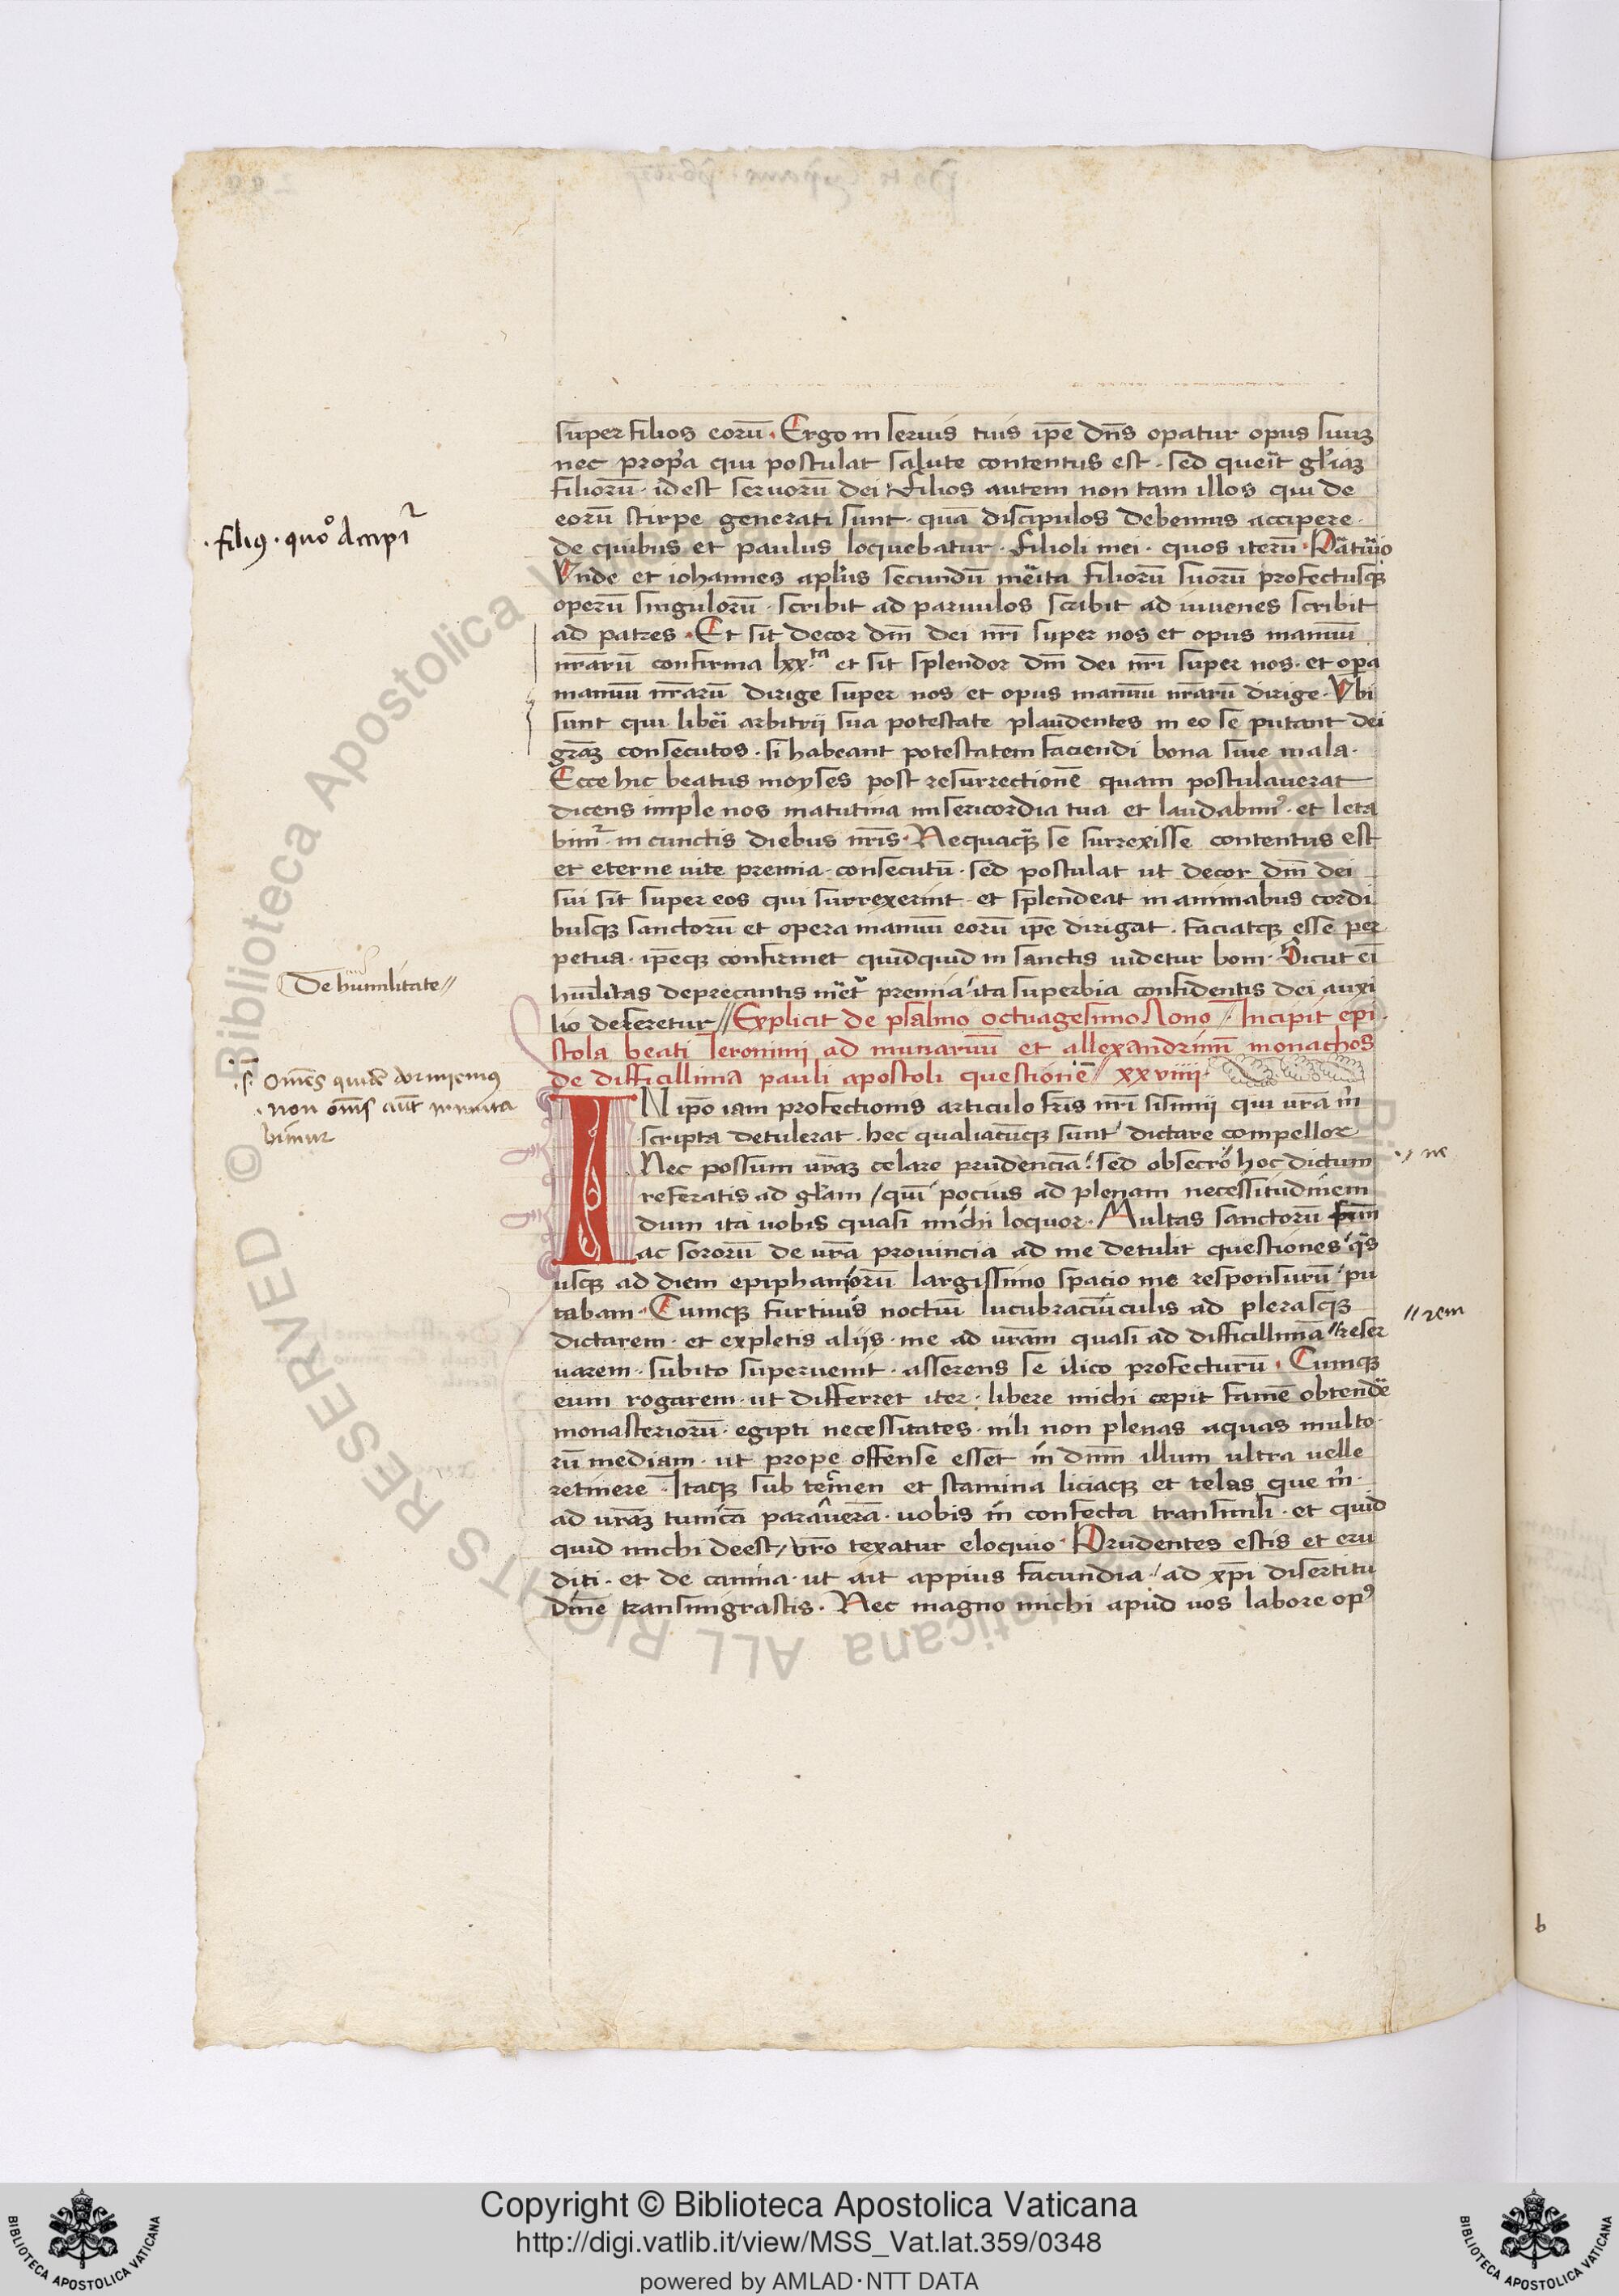 super filios eorū. Ergo in seruis tuis ip̄e dn̄s opatur opus suuꝫ
nec propͥa qui postulat salute contentus est. sed querit gl̄iaꝫ
filiorū. idest seruorū dei. Filios autem non tam illos qui de
eorū stirpe generati sunt. quā discipulos debemus accipere.
de quibus et paulus loquebatur. filioli mei. quos iterū. Partuio
.filiꝯ. quō Accipi
Vnde et iohannes apl̄us secundū merita filiorū suorū profectusqꝫ
operū singulorū. scribit ad paruulos scribit ad iuuenes scribit
ad patres. Et sit decor dn̄i dei nr̄i super nos et opus manuū
nr̄arū confirma lxx.ta et sit splendor dn̄i dei nr̄i super nos. et opa
manuū nr̄arū dirige super nos et opus manuū nr̄arū dirige. Vbi
sunt qui liberi arbitrij sua potestate plaudentes in eo se putant dei
gr̄aꝫ consecutos. si habeant potestatem faciendi bona siue mala.
Ecce hic beatus moyses post resurrectionē quam postulauerat
dicens imple nos matutina misericordia tua et laudabimꝰ. et leta
bimr̄. in cunctis diebus nr̄is. Nequaqꝫ se surrexisse contentus est
et eterne uite premia consecutū. sed postulat ut decor dn̄i dei
sui sit super eos qui surrexerint et splendeat in animabus cordi
busqꝫ sanctorū et opera manuū eorū ip̄e dirigat. faciatqꝫ esse per
petua. ip̄eqꝫ confirmet quidquid in sanctis uidetur boni. Sicut ei
De humilitate//
humilitas deprecantis met̉ premia ita superbia confidentis dei auxi
lio deseretur// Explicit de psalmo octuagesimo Nono // Incipit epi
stola beati Ieronimi ad munariuū et allexandrinū monachos
de difficillima pauli apostoli questionē // xxviiij.
.s. Omēs quidē dormiemus
.non omīs aūt inmuta
bimur
IN ip̄o iam profectionis articulo fr̄is nr̄i sisinnij qui ur̄a m̉
scripta detulerat. hec qualiacūqꝫ sunt dictare compellor
Nec possum ur̄aꝫ celare prudenciā. sed obsecro hoc dictum
// ne
referatis ad gl̄am / qui pocius ad plenam necessitudinem
dum ita uobis quasi michi loquor. Multas sanctorū frūm
ac sororū de ur̄a prouincia ad me detulit questiones qͣs
usqꝫ ad diem epiphaniorū largissimo spacio me responsurū pu
tabam. Cumqꝫ furtiuis noctiū lucubraciūculis ad plerasqꝫ
// rem
dictarem. et expletis alijs. me ad ur̄am quasi ad difficillimā // reser
uarem. subito superuenit. asserens se ilico profecturū. Cumqꝫ
eum rogarem. ut differret iter. libere michi cepit famē obtendē
monasteriorū. egipti necessitates. nili non plenas aquas multo.
rū mediam. ut prope offense esset in dnm̄ illum ultra uelle
retinere. Itaqꝫ sub temen et stamina liciaqꝫ et telas que m̉.
ad ur̄aꝫ tunicā parauerā. uobis in confecta transmisi. et quid
quid michi deest / ur̄o texatur eloquio. Prudentes estis et eru
diti. et de canina. ut ait appius facundia. ad xp̄i disertitu
dinē transmigrastis. Nec magno michi apud uos labore opꝰ
b
© Biblioteca Apostolica Vaticana ALL RIGHTS RESERVED
Copyright © Biblioteca Apostolica Vaticana
http://digi.vatlib.it/view/MSS_Vat.lat.359/0348
powered by AMLAD·NTT DATA
BIBLIOTECA APOSTOLICA VATICANA
BIBLIOTECA APOSTOLICA VATICANA